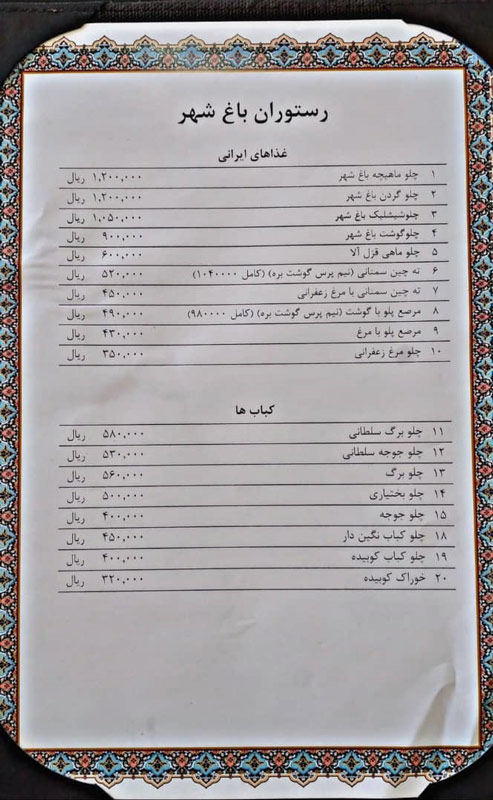 رستوران باغ شهر
غذاهای ایرانی
۱ چلو ماهیچه باغ شهر ۱,۲۰۰,۰۰۰ ریال
۲ چلو گردن باغ شهر ۱,۲۰۰,۰۰۰ ریال
۳ چلوشیشلیک باغ شهر ۱,۰۵۰,۰۰۰ ریال
۴ چلوگوشت باغ شهر ۹۰۰,۰۰۰ ریال
۵ چلو ماهی قزل آلا ۶۰۰,۰۰۰ ریال
۶ ته چین سمنانی (نیم پرس گوشت بره) (کامل ۱۰۴۰۰۰۰) ۵۲۰,۰۰۰ ریال
۷ ته چین سمنانی با مرغ زعفرانی ۴۵۰,۰۰۰ ریال
۸ مرصع پلو با گوشت (نیم پرس گوشت بره) (کامل ۹۸۰۰۰۰) ۴۹۰,۰۰۰ ریال
۹ مرصع پلو با مرغ ۴۳۰,۰۰۰ ریال
۱۰ چلو مرغ زعفرانی ۳۵۰,۰۰۰ ریال
کباب ها
۱۱ چلو برگ سلطانی ۵۸۰,۰۰۰ ریال
۱۲ چلو جوجه سلطانی ۵۳۰,۰۰۰ ریال
۱۳ چلو برگ ۵۶۰,۰۰۰ ریال
۱۴ چلو بختیاری ۵۰۰,۰۰۰ ریال
۱۵ چلو جوجه ۴۰۰,۰۰۰ ریال
۱۸ چلو کباب نگین دار ۴۵۰,۰۰۰ ریال
۱۹ چلو کباب کوبیده ۴۰۰,۰۰۰ ریال
۲۰ خوراک کوبیده ۳۲۰,۰۰۰ ریال